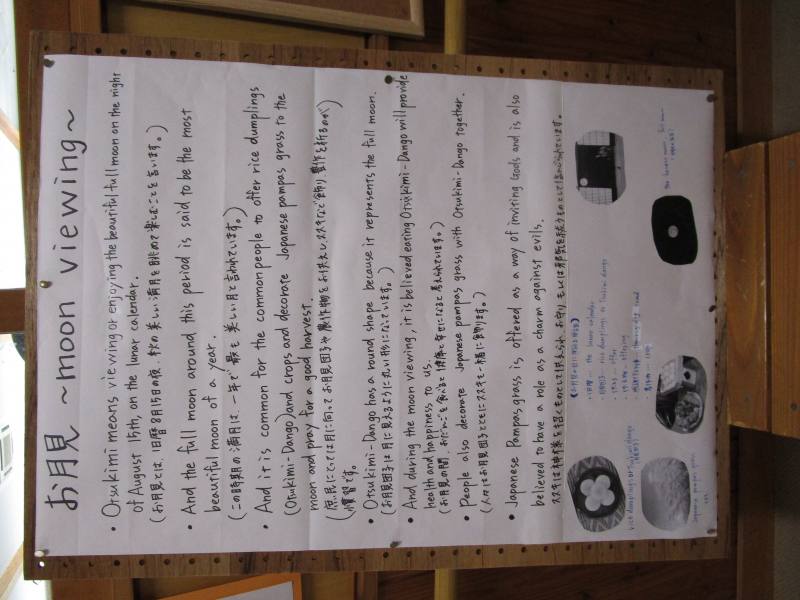 お月見 ~moon viewing~
• Otsukimi means viewing or enjoying the beautiful full moon on the night
of August 15th, on the lunar calendar.
(お月見とは、旧暦8月15日の夜、秋の美しい満月を眺めて楽しむことを言います。)
• And the full moon around this period is said to be the most
beautiful moon of a year.
(この時期の満月は、一年で最も美しい月と言われています。)
• And it is common for the common people to offer rice dumplings
(Otsukimi-Dango) and crops and decorate Japanese pampas grass to the
moon and pray for a good harvest.
(庶民にとっては月に向ってお月見団子や農作物をお供えしススキなど飾り豊作を祈るのが
慣習です。)
• Otsukimi-Dango has a round shape because it represents the full moon.
(お月見団子は月に見えるように丸い形になっています。)
• And during the moon viewing, it is believed eating Otsukimi-Dango will provide
health and happiness to us.
(お月見の間、おだんごを食べると健康と幸せになると考えられています。)
• People also decorate Japanese pampas grass with Otsukimi-Dango together.
(人々はお月見団子とともにススキも一緒に飾ります。)
• Japanese Pampas grass is offered as a way of inviting Gods and is also
believed to have a role as a charm against evils.
ススキは神様を招くものとして供えられ、お守り、もしくは邪気を祓うものとして信じられています。
rice dumplings or Tsukimi dango
Japanese pampas grass
the harvest moon full moon